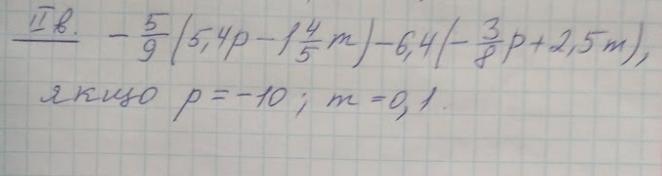 IIв. - 5/9 (5,4p - 1 4/5 m) - 6,4(- 3/8 p + 2,5m),
якщо p = -10; m = 0,1.